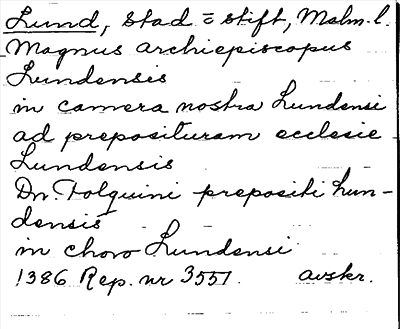 Lund, stad o stift, Malm. l.
Magnus archiepiscopus
Lundensis
in camera nostra Lundensi
ad preposituram ecclesie
Lundensis
Dn. Folquini prepositi Lun-
densis
in choro Lundensi
1386 Rep. nr 3557. avskr.